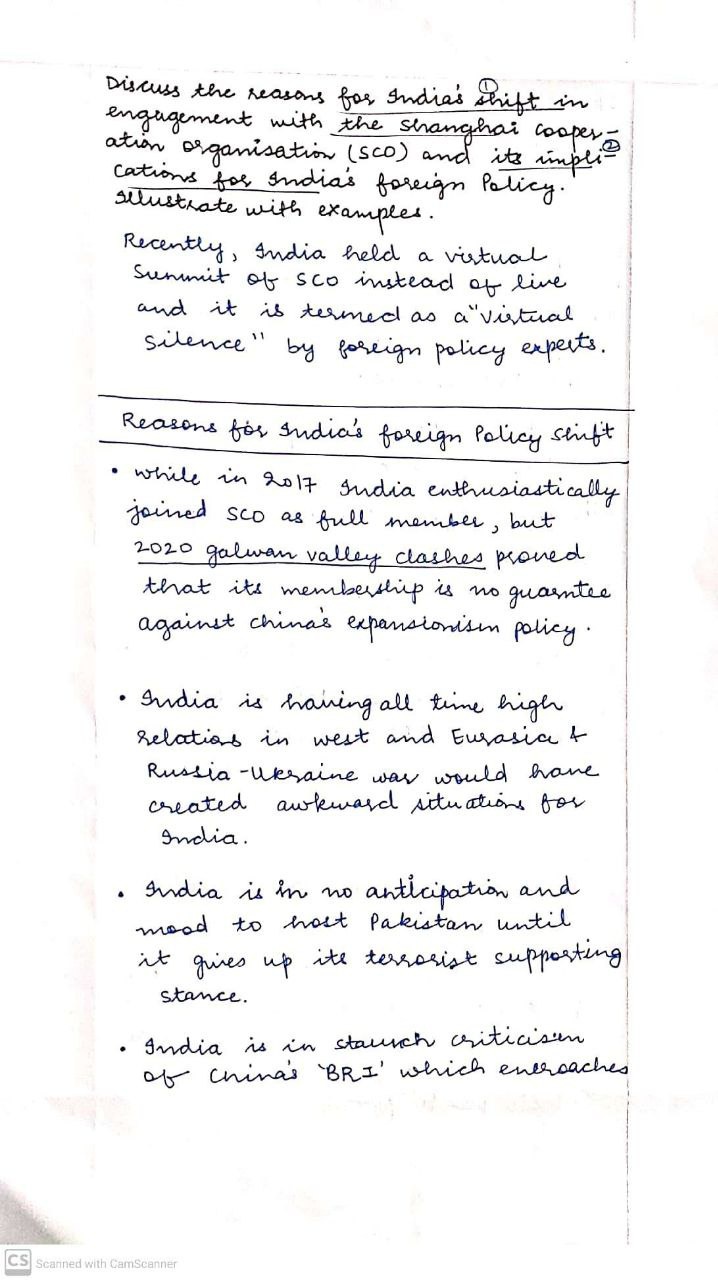 ①
Discuss the reasons for India's shift in
engagement with the Shanghai cooper-
②
ation organisation (SCO) and its impli-
cations for India's foreign Policy.
Illustrate with examples.
Recently, India held a virtual
Summit of SCO instead of live
and it is termed as a "virtual
silence" by foreign policy experts.
Reasons for India's foreign Policy shift
• while in 2017 India enthusiastically
joined SCO as full member, but
2020 galwan valley clashes proved
that its membership is no guarntee
against china's expansionism policy.
• India is having all time high
relations in west and Eurasia &
Russia-Ukraine war would have
created awkward situations for
India.
• India is in no anticipation and
mood to host Pakistan until
it gives up its terrorist supporting
stance.
• India is in staunch criticism
of China's 'BRI' which encroaches
CS Scanned with CamScanner